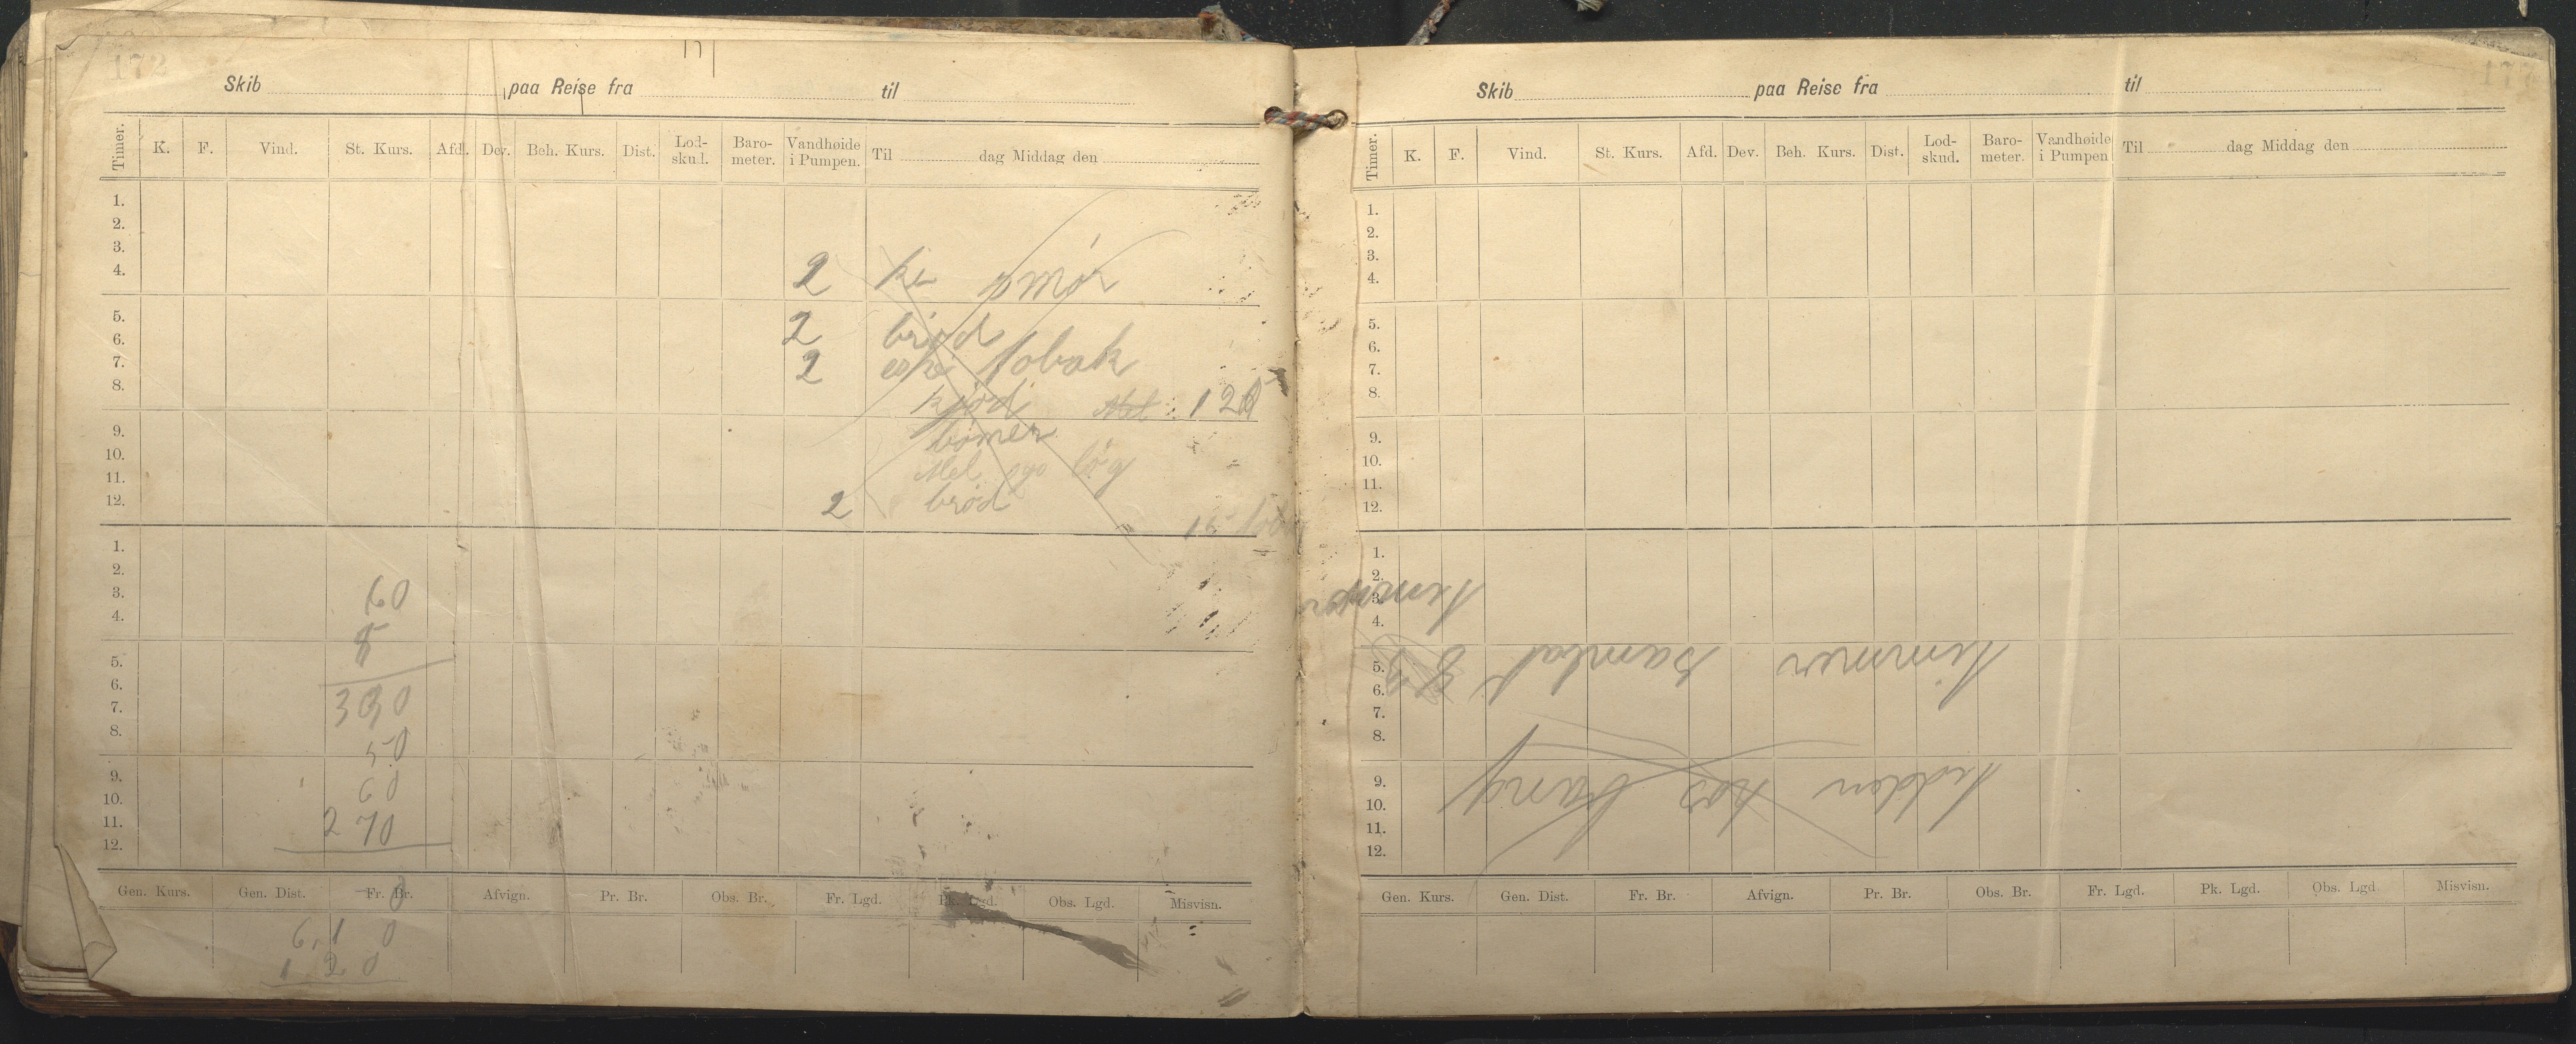 172
Skib paa Reise fra til
Timer. K. F. Vind. St. Kurs. Afd. Dev. Beh. Kurs. Dist. Lod-skud. Baro-meter. Vandhøide i Pumpen. Til dag Middag den
1.
2.
3.
4.
2 ki smør
5.
6.
7.
8.
2 brød
2 tobak
kjød Mel 120
9.
10.
11.
12.
bønner
Mel og løg
2 brød
1.
2.
3.
4.
60
5
5.
6.
7.
8.
300
50
9.
10.
11.
12.
60
270
Gen. Kurs. Gen. Dist. Fr. Br. Afvign. Pr. Br. Obs. Br. Fr. Lgd. Pk. Lgd. Obs. Lgd. Misvisn.
610
120
Skib paa Reise fra til
Timer. K. F. Vind. St. Kurs. Afd. Dev. Beh. Kurs. Dist. Lod-skud. Baro-meter. Vandhøide i Pumpen Til dag Middag den
1.
2.
3.
4.
5.
6.
7.
8.
9.
10.
11.
12.
1.
2.
3.
4.
5.
6.
7.
8.
9.
10.
11.
12.
timmer samlat
Gen. Kurs. Gen. Dist. Fr. Br. Afvign. Pr. Br. Obs. Br. Fr. Lgd. Pk. Lgd. Obs. Lgd. Misvisn.